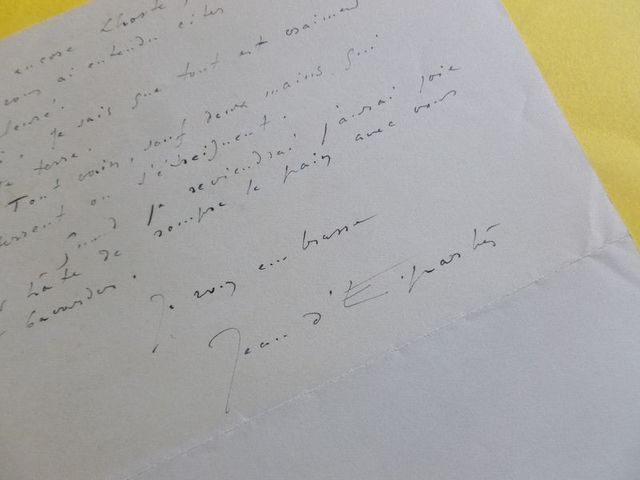 encore Lhoste,
vous ai entendu citer
pleuré.
je sais que tout est vraiment
terre.
Tout vain, sauf deux mains qui
serrent ou s'étreignent.
Quand je reviendrai j'aurai joie
hâte de rompre le pain avec vous
bavarder.
Je vous embrasse
Jean d'Esparbès